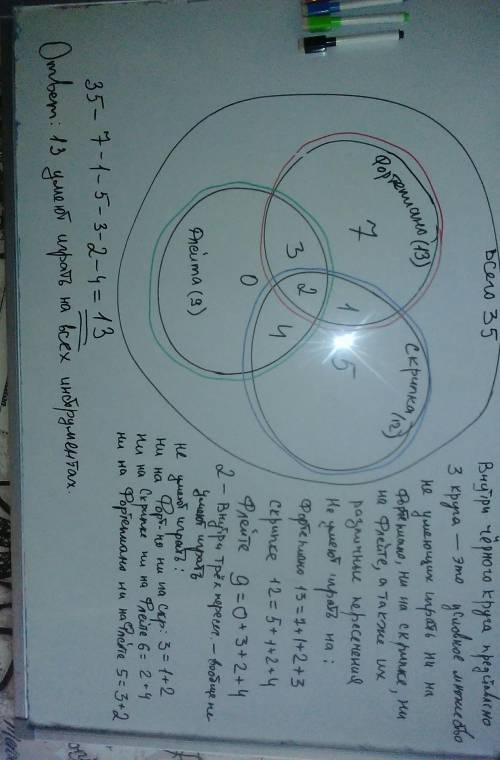 Всего 35
Фортепиано (13)
Скрипка (12)
Флейта (9)
7
1
5
3
2
4
0
Внутри чёрного круга представлено
3 круга — это условное множество
не умеющих играть ни на
Фортепиано, ни на скрипке, ни
на Флейте, а также их
различные пересечения
Не умеют играть на:
Фортепиано 13=7+1+2+3
Скрипке 12=5+1+2+4
Флейте 9=0+3+2+4
2 – Внутри трёх пересеч. – вообще не
умеют играть
Не умеют играть:
ни на Форт-но ни на скр: 3=1+2
ни на Скрипке ни на Флейте 6=2+4
ни на Фортепиано ни на Флейте 5=3+2
35-7-1-5-3-2-4=13
Ответ: 13 умеют играть на всех инструментах.